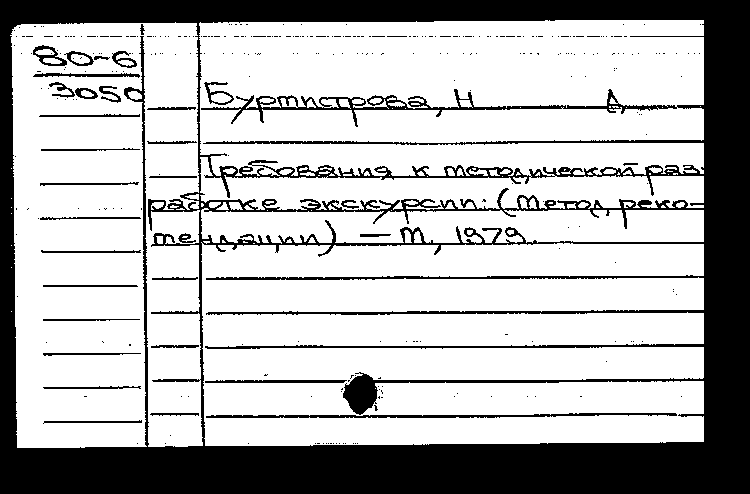 80-6
3050
Буртистрова, Н Д
Требования к методической раз-
работке экскурсии: (Метод, реко-
мендации) — М, 1979.